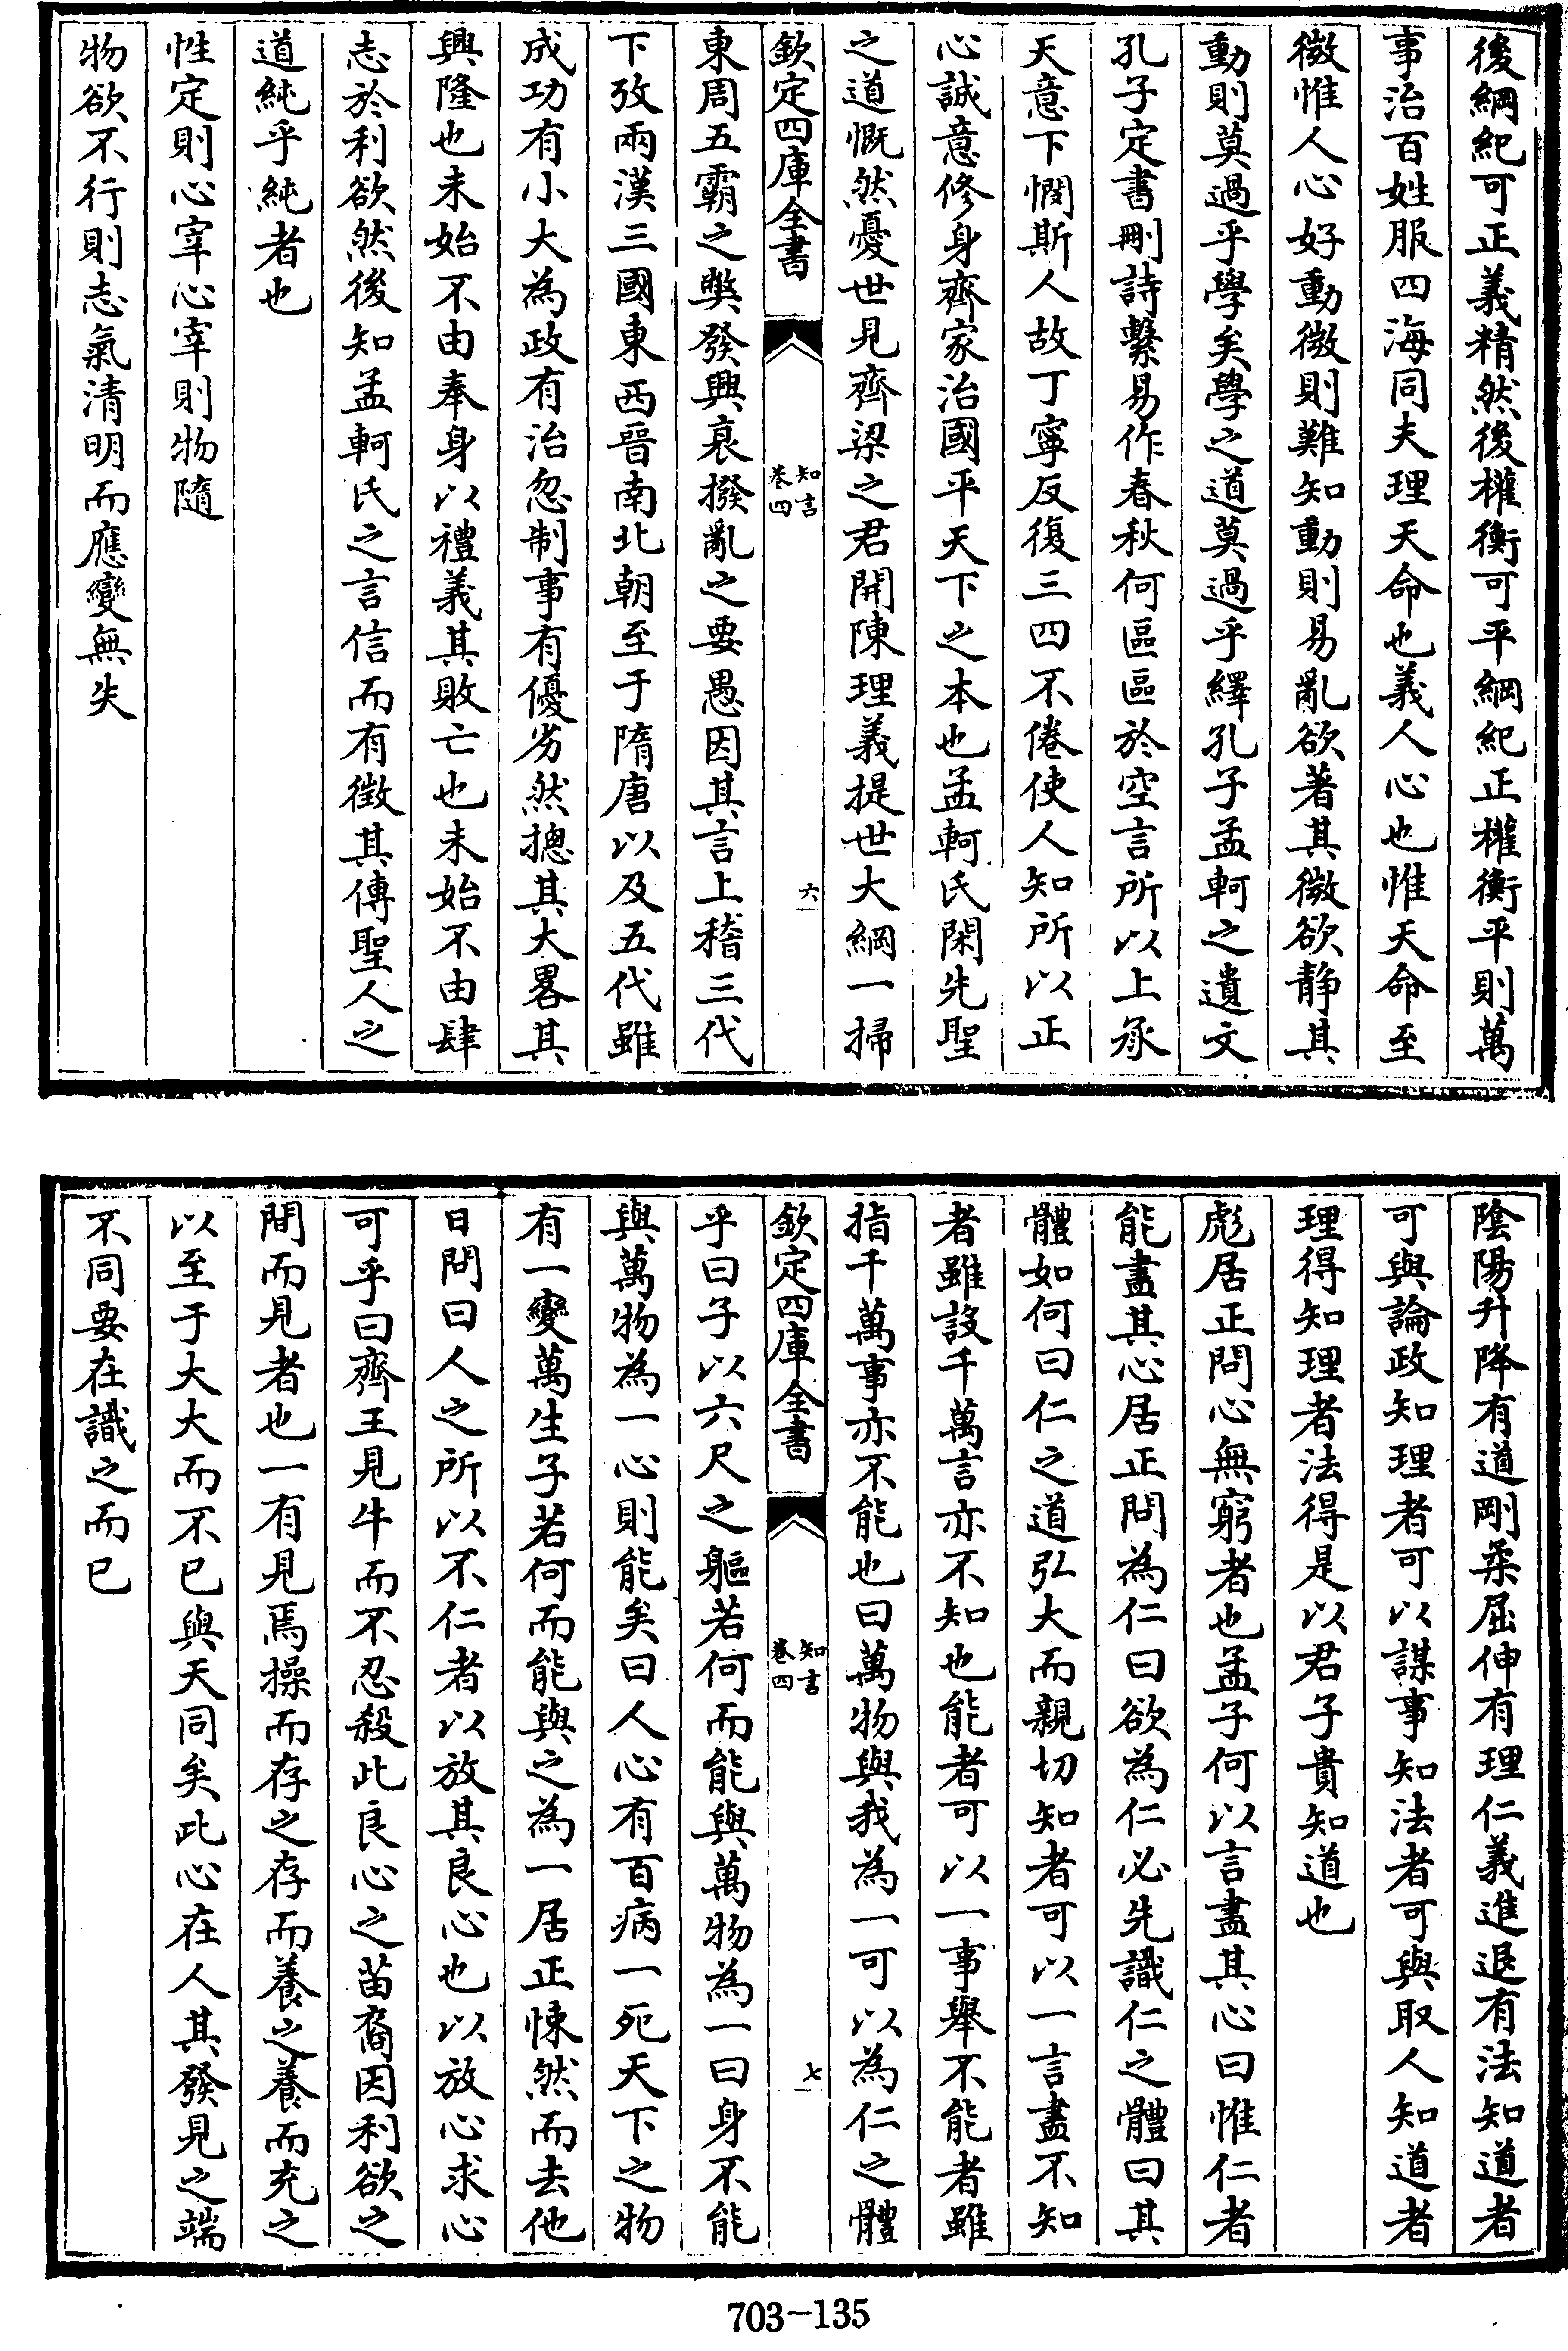 後綱紀可正義精然後權衡可平綱紀正權衡平則萬
事治百姓服四海同夫理天命也義人心也惟天命至
微惟人心好動微則難知動則易亂欲著其微欲静其
動則莫過乎學矣學之道莫過乎繹孔子孟軻之遺文
孔子定書刪詩繫易作春秋何區區於空言所以上承
天意下憫斯人故丁寧反復三四不倦使人知所以正
心誠意修身齊家治國平天下之本也孟軻氏閑先聖
之道慨然憂世見齊梁之君開陳理義提世大綱一掃
欽定四庫全書
知言
卷四
六
東周五霸之弊發興衰撥亂之要愚因其言上稽三代
下攷兩漢三國東西晉南北朝至于隋唐以及五代雖
成功有小大為政有治忽制事有優劣然摠其大畧其
興隆也未始不由奉身以禮義其敗亡也未始不由肆
志於利欲然後知孟軻氏之言信而有徵其傳聖人之
道純乎純者也
性定則心宰心宰則物隨
物欲不行則志氣清明而應變無失
陰陽升降有道剛柔屈伸有理仁義進退有法知道者
可與論政知理者可以謀事知法者可與取人知道者
理得知理者法得是以君子貴知道也
彪居正問心無窮者也孟子何以言盡其心曰惟仁者
能盡其心居正問為仁曰欲為仁必先識仁之體曰其
體如何曰仁之道弘大而親切知者可以一言盡不知
者雖設千萬言亦不知也能者可以一事舉不能者雖
指千萬事亦不能也曰萬物與我為一可以為仁之體
欽定四庫全書
知言
卷四
七
乎曰子以六尺之軀若何而能與萬物為一曰身不能
與萬物為一心則能矣曰人心有百病一死天下之物
有一變萬生子若何而能與之為一居正悚然而去他
日問曰人之所以不仁者以放其良心也以放心求心
可乎曰齊王見牛而不忍殺此良心之苗裔因利欲之
間而見者也一有見焉操而存之存而養之養而充之
以至于大大而不已與天同矣此心在人其發見之端
不同要在識之而已
703-135